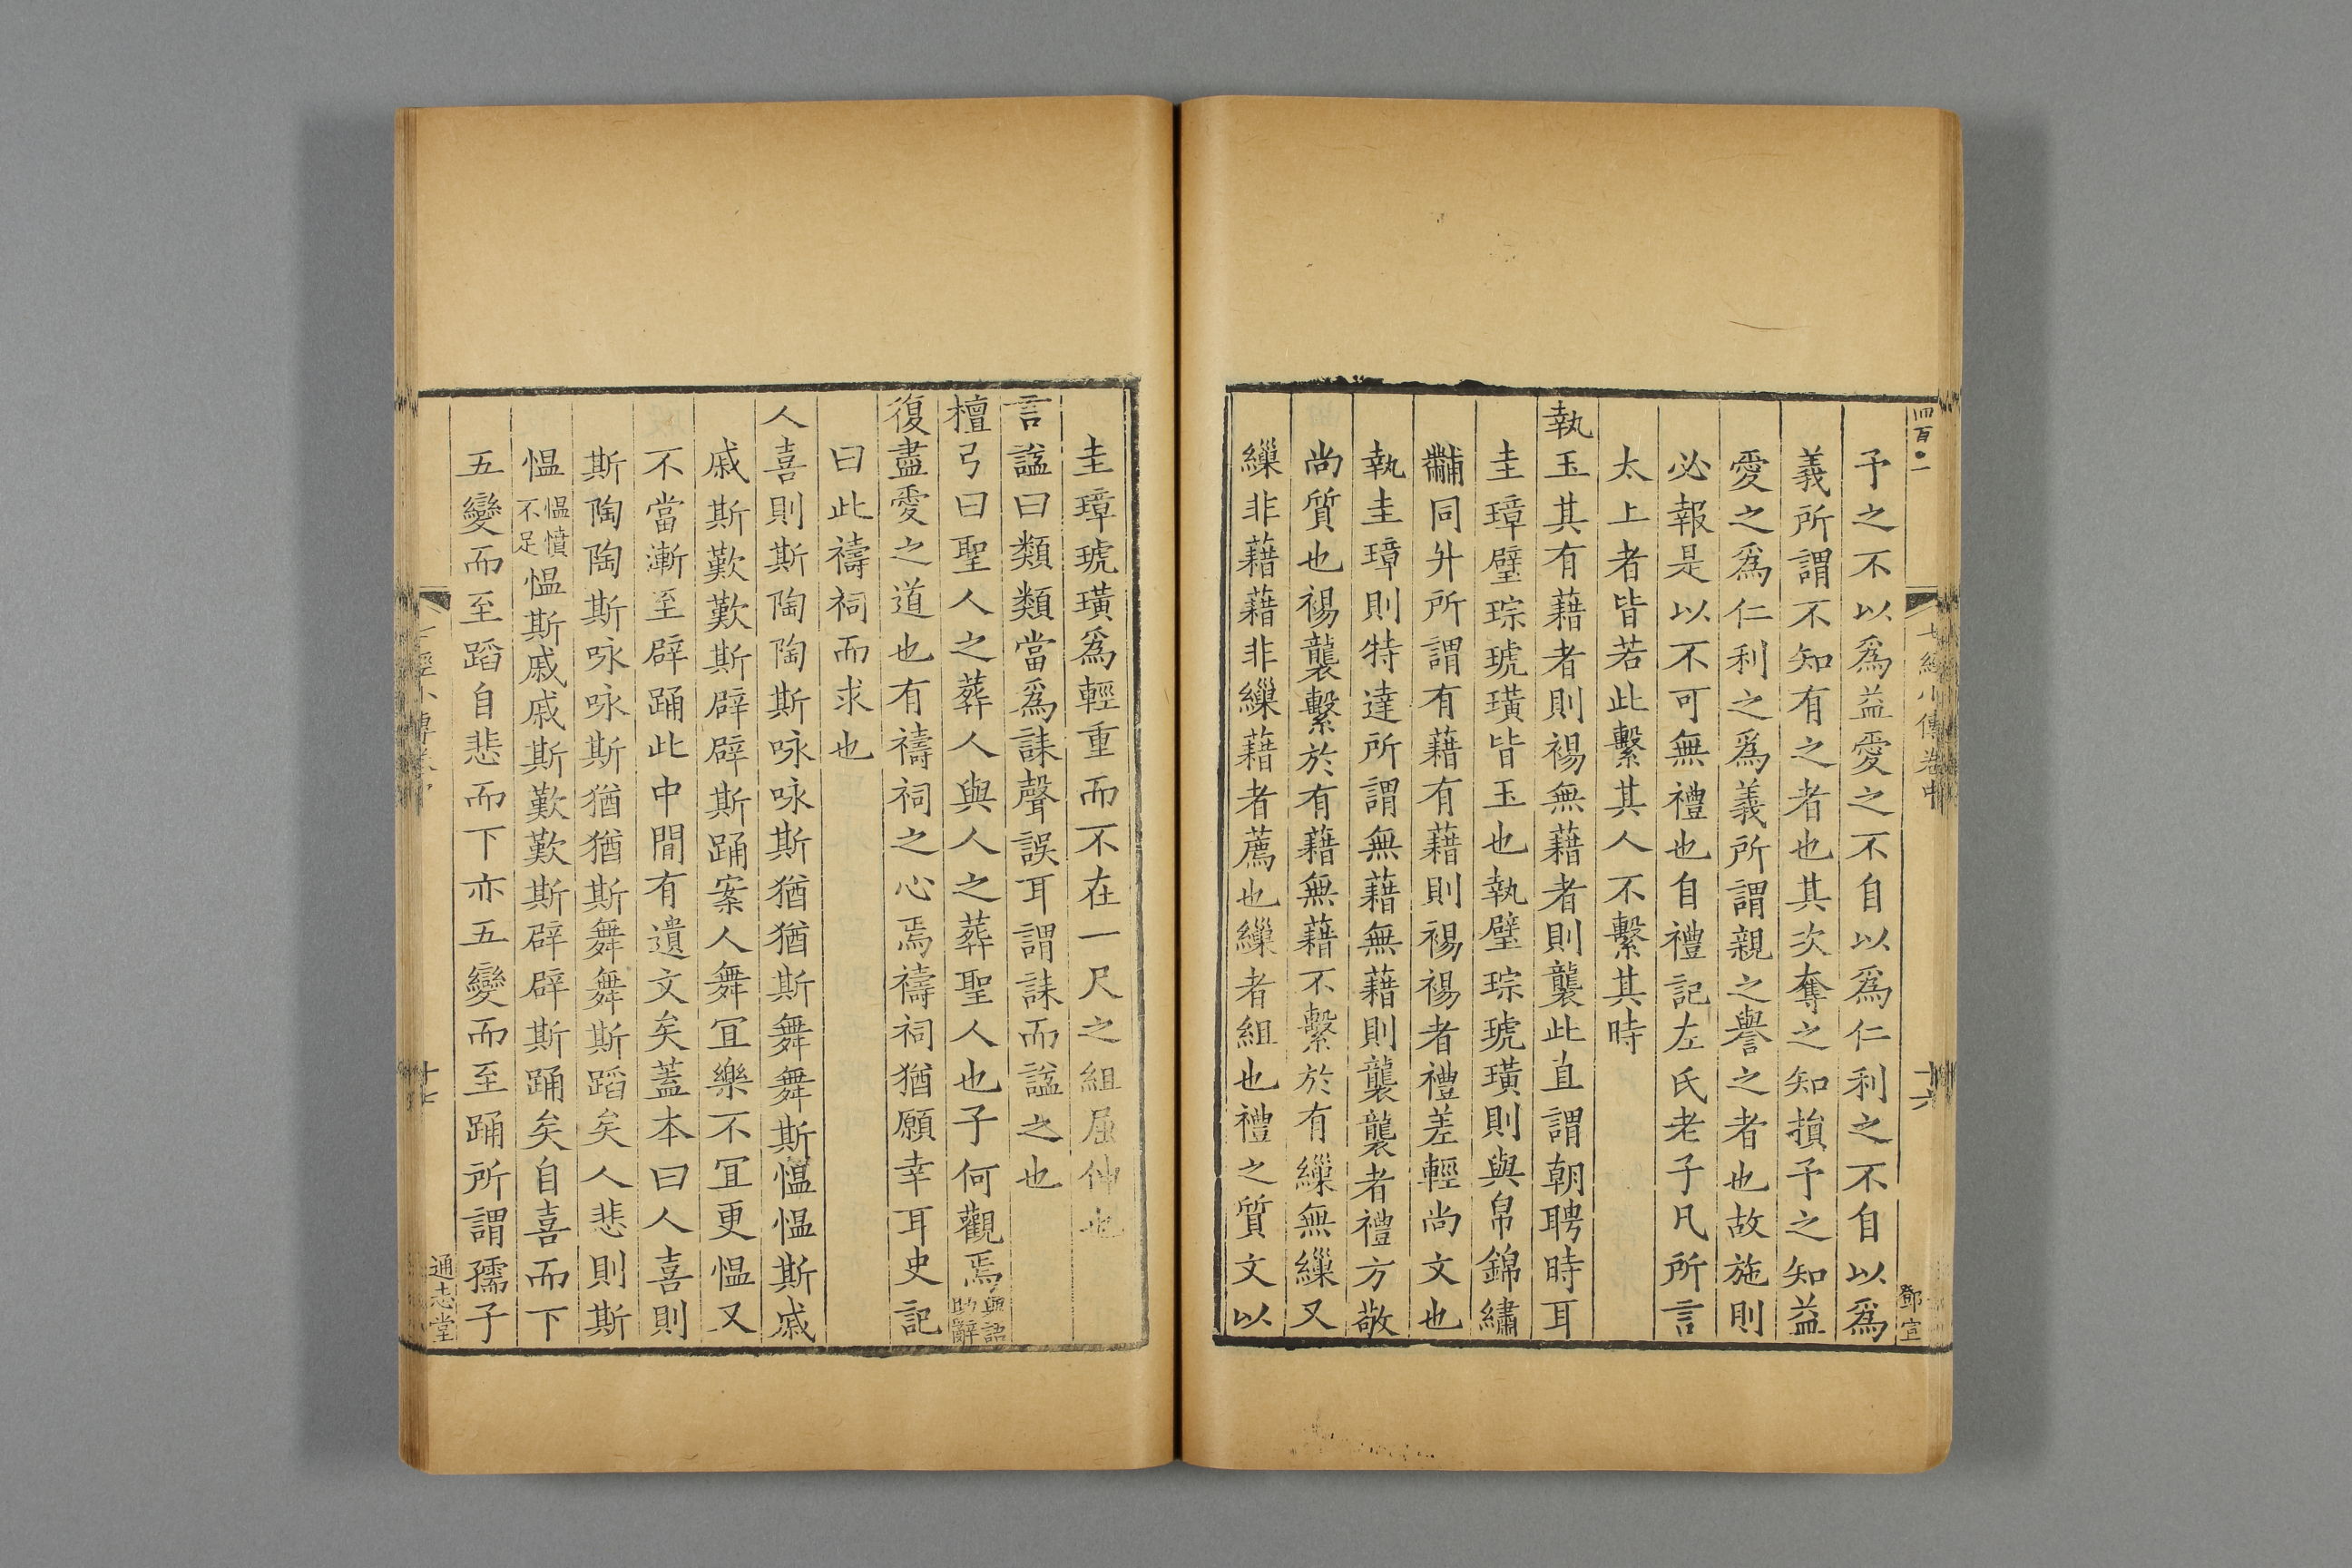 四百●一
七經小傳卷中
十六
鄧宣
予之不以爲益愛之不自以爲仁利之不自以爲
義所謂不知有之者也其次奪之知損予之知益
愛之爲仁利之爲義所謂親之譽之者也故施則
必報是以不可無禮也自禮記左氏老子凡所言
太上者皆若此繫其人不繫其時
執玉其有藉者則裼無藉者則襲此直謂朝聘時耳
圭璋璧琮琥璜皆玉也執璧琮琥璜則與帛錦繡
黼同升所謂有藉有藉則裼裼者禮差輕尚文也
執圭璋則特達所謂無藉無藉則襲襲者禮方敬
尚質也裼襲繫於有藉無藉不繫於有繅無繅又
繅非藉藉非繅藉者薦也繅者組也禮之質文以
圭璋琥璜爲輕重而不在一尺之組屈伸也
言諡曰類類當爲誄聲誤耳謂誄而諡之也
檀弓曰聖人之葬人與人之葬聖人也子何觀焉與語助辭
復盡愛之道也有禱祠之心焉禱祠猶願幸耳史記
曰此禱祠而求也
人喜則斯陶陶斯咏咏斯猶猶斯舞舞斯慍慍斯戚
戚斯歎歎斯辟辟斯踊案人舞宜樂不宜更慍又
不當漸至辟踊此中間有遺文矣蓋本曰人喜則
斯陶陶斯咏咏斯猶猶斯舞舞斯蹈矣人悲則斯
慍慍憤不足慍斯戚戚斯歎歎斯辟辟斯踊矣自喜而下
五變而至蹈自悲而下亦五變而至踊所謂孺子
七經小傳卷中
十七
通志堂